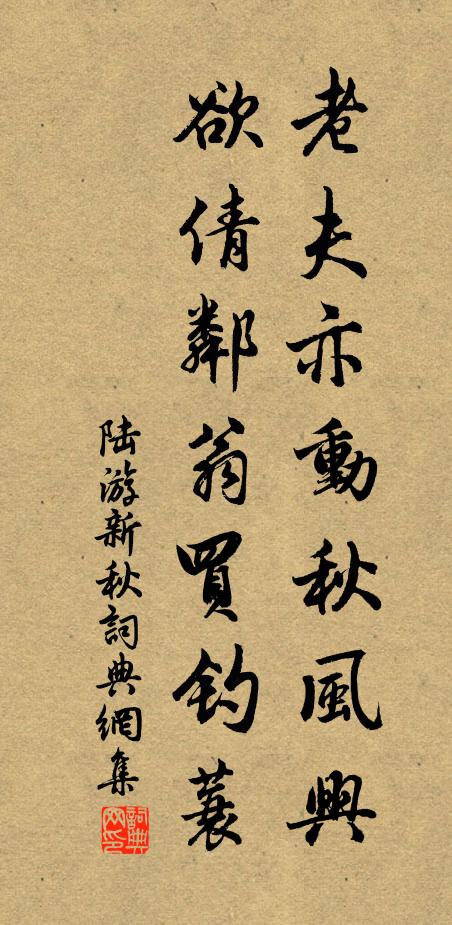 老夫亦動秋風興
欲倩鄰翁買釣蓑
陆游新秋詞典網集
詞典网印